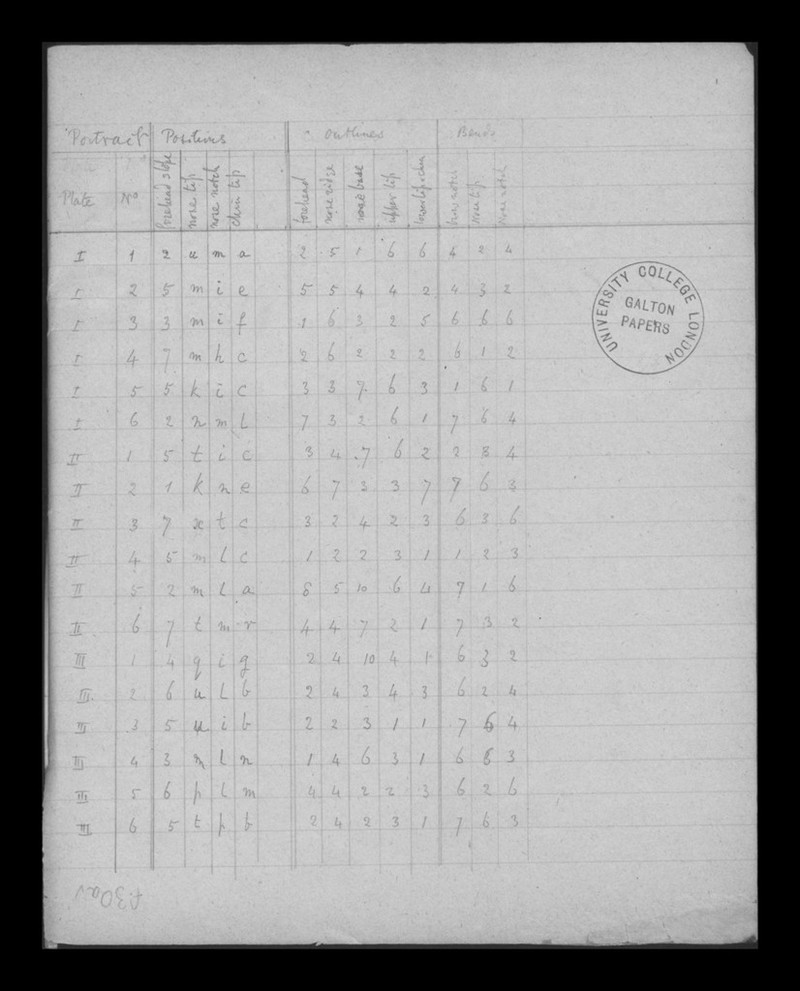 Portrait Positions Outlines Bends
Plate No forehead slope nose tip nose notch chin tip forehead nose ridge nose base upper lip lower lip & chin brow notch nose tip nose notch
I 1 2 u m a 2 5 1 6 6 4 2 4
I 2 5 m i e 5 5 4 4 2 4 3 2
I 3 3 m i f 1 6 3 2 5 6 6 6
I 4 7 m h c 2 6 2 2 2 6 1 2
I 5 5 k i c 3 3 7 6 3 1 6 1
I 6 2 n m l 7 3 2 6 1 7 6 4
II 1 5 t i c 3 4 7 6 2 2 8 4
II 2 1 k n e 6 7 3 3 7 7 6 3
II 3 7 x t c 3 2 4 2 3 6 3 6
II 4 5 m l c 1 2 2 3 1 1 2 3
II 5 2 m l a 8 5 10 6 4 7 1 6
II 6 7 t m r 4 4 7 2 1 7 3 2
III 1 4 q i g 2 4 10 4 1 6 3 2
III 2 6 u l b 2 4 3 4 3 6 2 4
III 3 5 u i b 2 2 3 1 1 7 6 4
III 4 3 m l n 1 4 6 3 1 6 8 3
III 5 6 p l m 4 4 2 2 3 6 2 6
III 6 5 t p b 2 4 2 3 1 7 6 3
UNIVERSITY COLLEGE LONDON
GALTON
PAPERS